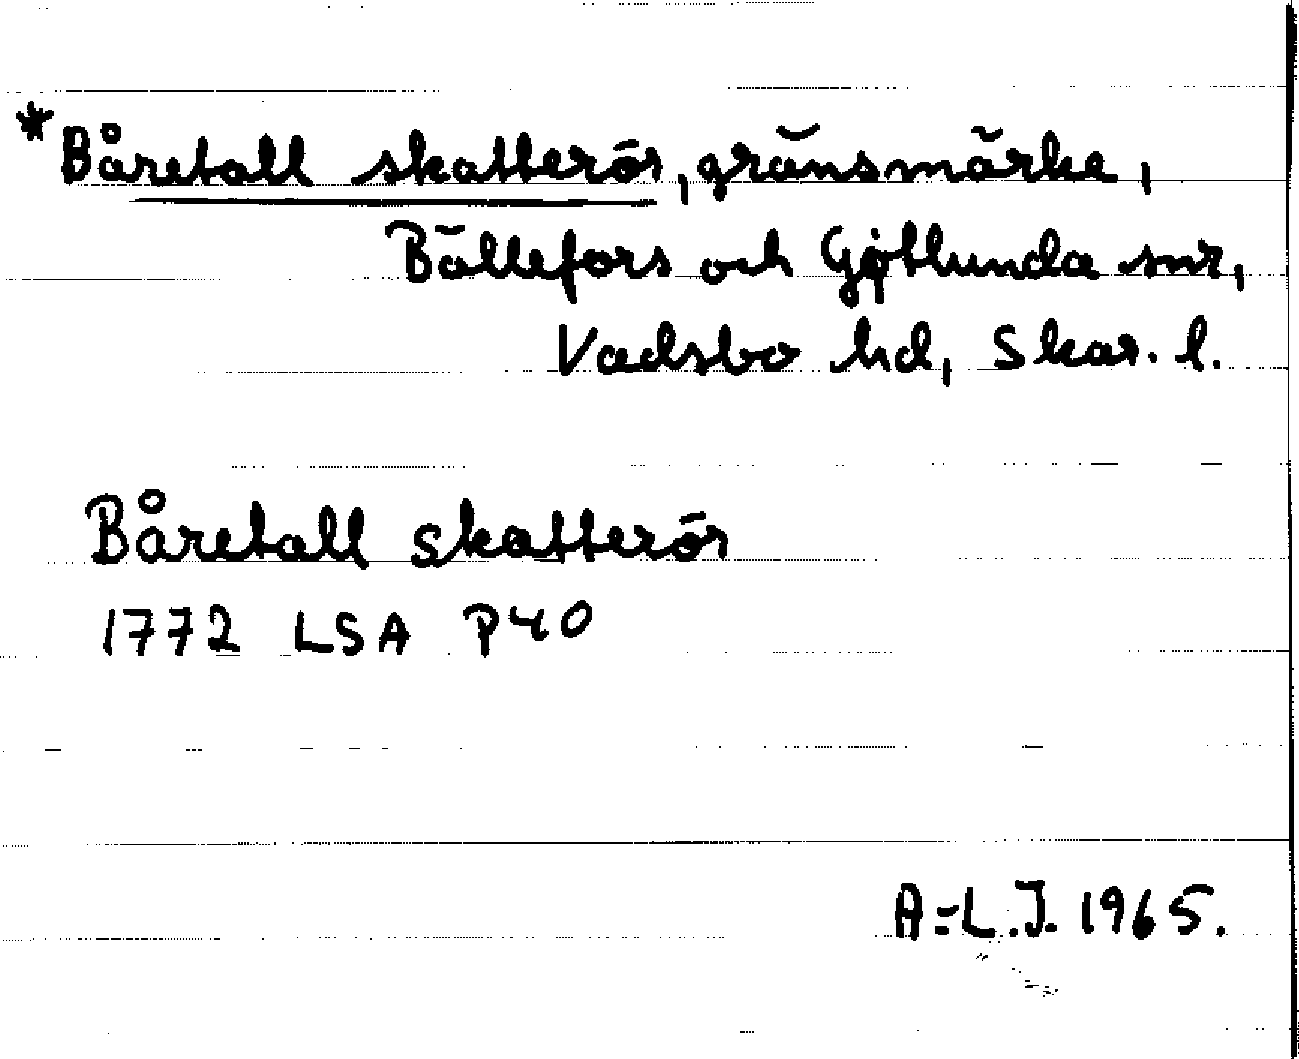 *Båretall skatterös, gränsmärke,
Bällefors och Götlunda snr,
Vadsbo hd, Skar. l.
Båretall skatterös
1772 LSA P40
A:-L.J. 1965.